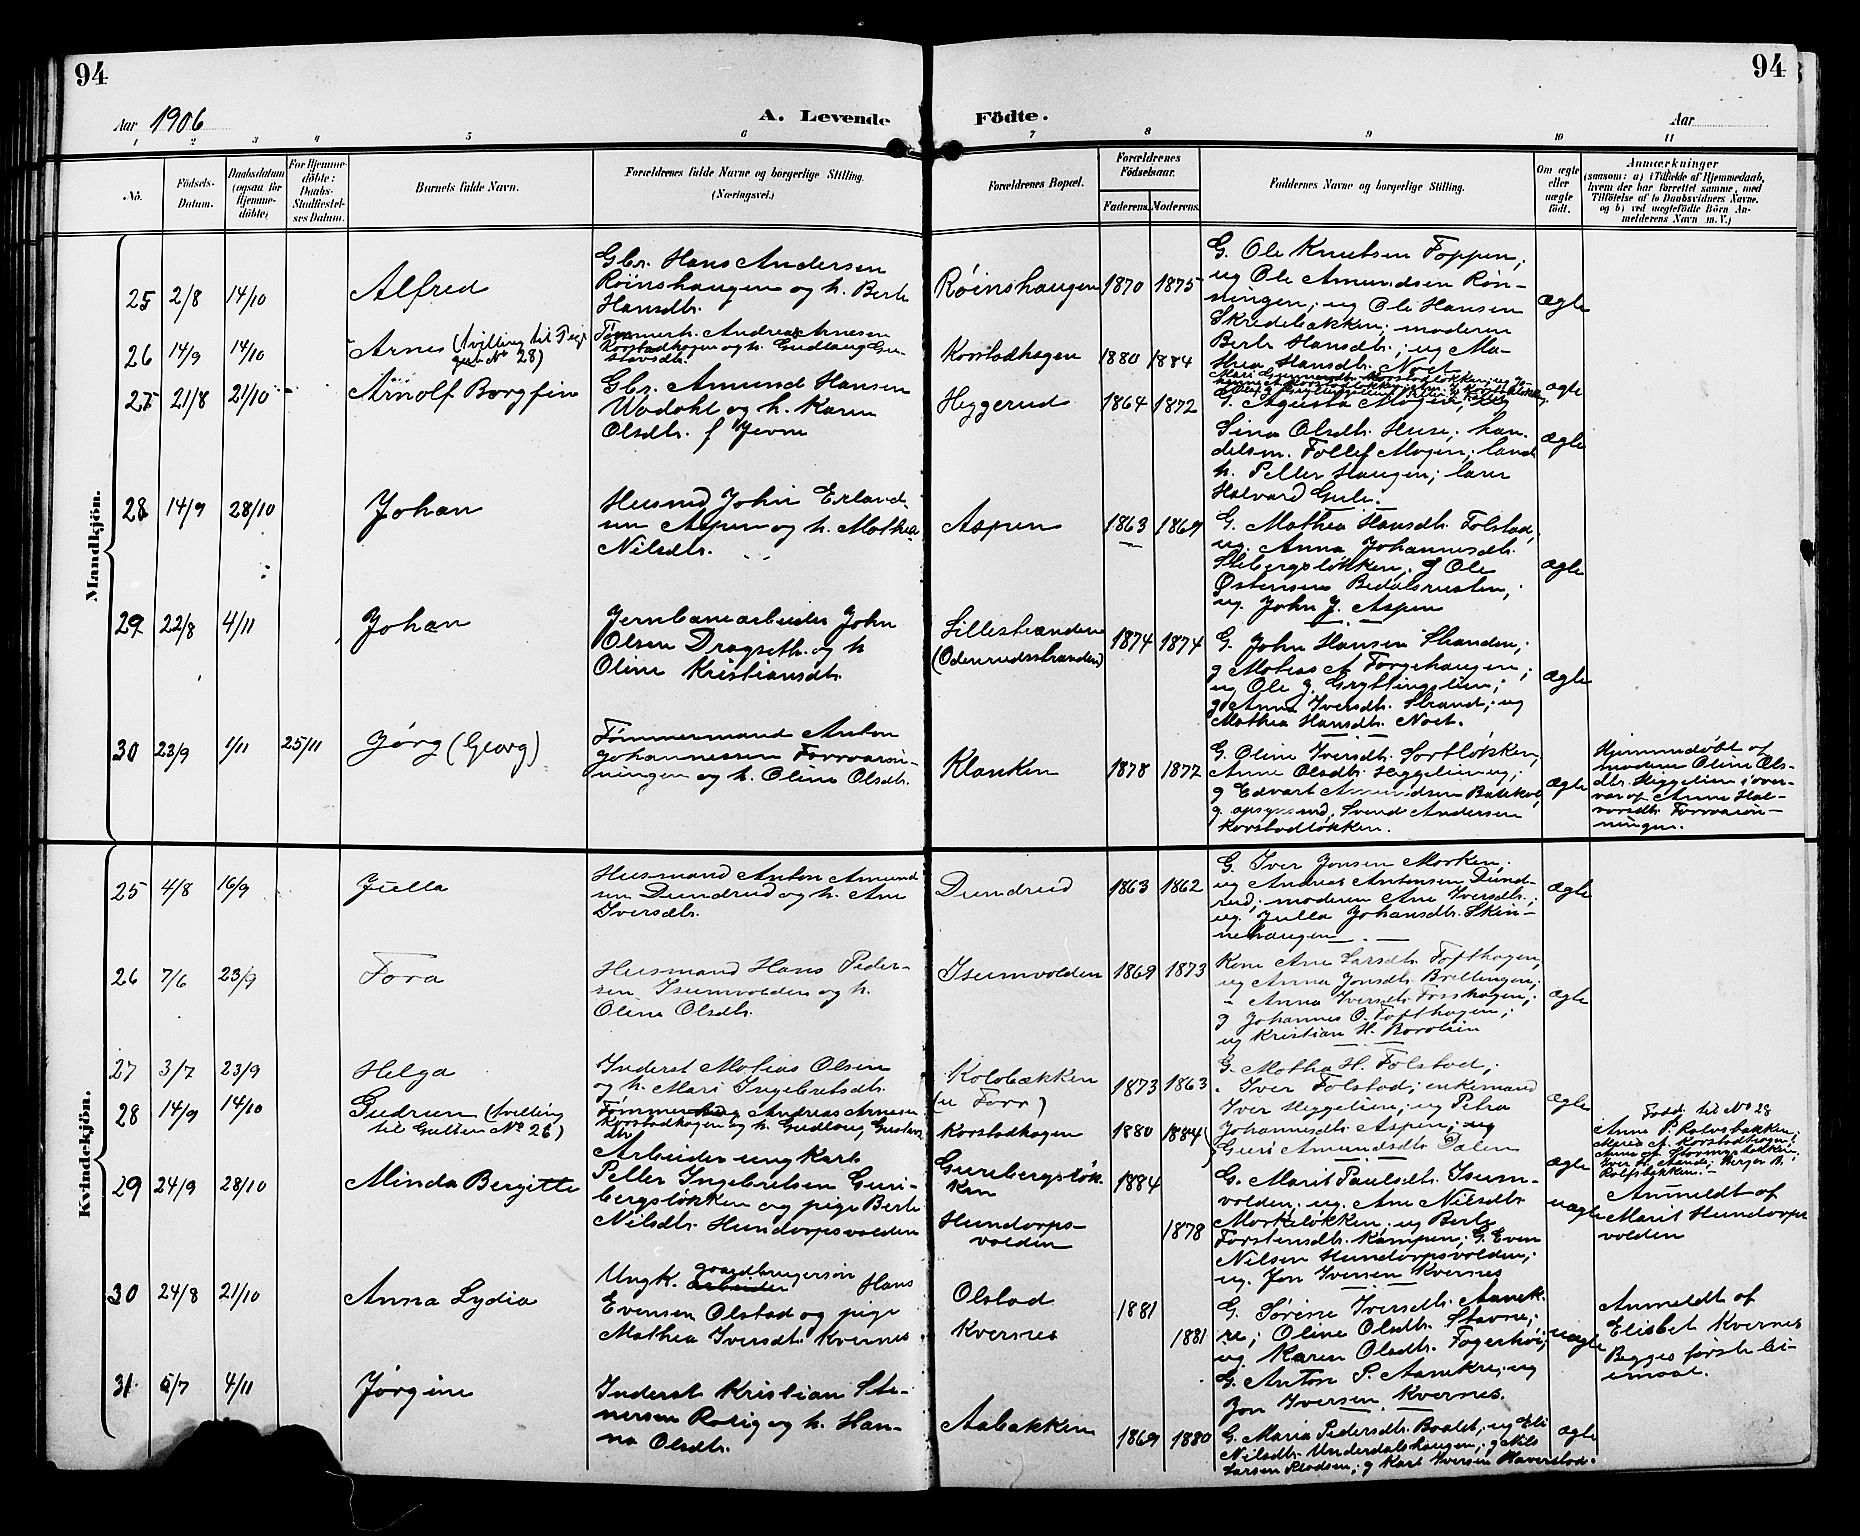 94
94
Aar 1906
A. Levende Födte.
Aar
1 2 3 4 5 6 7 8 9 10 11
No.
Födsels-
Datum.
Daabsdatum
(ogsaa for
Hjemme-
döbte)
For Hjemme-
döbte:
Daabs-
Stadfæstel-
ses Datum.
Barnets fulde Navn.
Forældrenes fulde Navne og borgerlige Stilling.
(Næringsvei.)
Forældrenes Bopæl.
Forældrenes
Födselsaar.
Faderens.
Moderens.
Faddernes Navne og borgerlige Stilling.
Om ægte
eller
uægte
født.
Anmærkninger
(saasom: a) i Tilfælde af Hjemmedaab,
hvem der har forrettet samme, med
Tilföielse af to Daabsvidners Navne.
og b) ved uegtefödte Börn An-
melderens Navn m. V.)
Mandkjön.
25 2/8 14/10
Alfred
Gbr. Hans Andersen
Røinshaugen og h. Berte
Hansdtr.
Røinshaugen 1870 1875
G. Ole Knutsen Toppen;
ug Ole Amundsen Røn-
ningen; ug Ole Hansen
Skredebakken; moderen
Berte Hansdtr.; ug Ma-
thea Hansdtr. Noet
ægte
26 14/9 14/10
Arnes (Tvilling til Pige
No 28)
Tømmerh. Andreas Arnesen
Korstadhagen og h. Gudlaug Gu-
stavsdtr.
Korstadhagen 1880 1884
ægte
27 21/8 21/10
Arnolf Borgfin
Gbr. Amund Hansen
Wadahl og h. Karen
Olsdtr. f Jevne
Heggerud 1864 1872
G. Agusta Mogen;
Sina Olsdtr. Huse; han-
delsm. Tollef Mogen; land
h. Petter Haugen; lærer
Halvard Gule.
ægte
28 14/9 28/10
Johan
Husmd John Erland-
sen Aspen og h. Mathea
Nilsdtr.
Aspen 1863 1869
G. Mathea Hansdtr. Tolstad,
ug. Anna Johannesdtr.
Stebergsløkken; g Ole
Østensen Bedalsrusten;
ug. John J. Aspen
ægte
29 22/8 4/11
Johan
Jernbanearbeider John
Olsen Dragseth og h
Oline Kristiansdtr.
Lillestranden
(Odenrudsstranden) 1874 1874
G. John Hansen Stranden;
g Matias A Torgehaugen;
ug Ole J. Gryttingslien;
g Anna Iversdtr. Strand; ug
Mathea Hansdtr. Noet.
ægte
30 23/9 1/11 25/11
Jørg (Georg)
Tømmermand Anton
Johannessen Forrvarøn-
ningen og h. Oline Olsdtr.
Klanken 1878 1872
G. Oline Iversdtr. Sortløkken;
Anne Olsdtr. Heggelien ug;
g Edvart Amundsen
g. opsynsmd. Svend Andersen
Korstadløkken.
ægte
Hjemmedøbt af
moderen Oline Ols-
dtr. Heggelien i over-
vær af Anne Hal-
vorsdtr. Forrvarøn-
ningen.
Kvindekjön.
25 4/8 16/9
Julla
Husmand Anton Amund-
sen Dundrud og h. Ane
Iversdtr.
Dundrud 1863 1862
G. Iver Jonsen Morken;
ug Andreas Antonsen Dund-
rud; moderen Ane Iversdtr.;
ug. Julla Johansdtr. Skin-
nehaugen
ægte
26 7/6 23/9
Tora
Husmand Hans Peder-
sen Isumvolden og h.
Oline Olsdtr.
Isumvolden 1869 1873
Kone Ane Larsdtr. Tofthagen,
ug Anna Jonsdtr. Brettingen;
" Anna Iversdtr. Fosshagen;
g Johannes O. Tofthagen;
ug Kristian H. Borolien
ægte
27 3/7 23/9
Helga
Inderst Matias Olsen
og h. Mari Ingebretsdtr.
Kolobækken
(u Forr) 1873 1863
G. Mathea H. Tolstad;
Iver Tolstad; enkemand
Iver Heggelien; ug Petra
Johannesdtr. Aspen; ug
Guri Amundsdtr. Dalen
ægte
28 14/9 14/10
Gudrun (Tvilling
til Gutten No 26)
Tømmerhug Andreas Arnesen
Korstadhagen og h. Gudlaug Gustavs-
dtr
Korstadhagen 1880 1884
ægte
Fadd. til No 28
29 24/9 28/10
Minda Bergitte
Arbeider ungkarl
Petter Ingebretsen Guri-
bergsløkken og pige Berte
Nilsdtr. Hundorpsvolden
Guribergsløk-
ken 1884
Hundorps-
volden 1878
G. Marit Paulsdtr. Isum-
volden; ug. Ane Nilsdtr
Morkeløkken; ug Berte
Torstensdtr. Kampen; G. Even
Nilsen Hundorpsvolden;
ug. Jon Iversen Kvernes
uægte
Anmeldt af
Marit Hundorps-
volden
30 24/8 21/10
Anna Lydia
Ungk. gaardbrugersøn Hans
Evensen Olstad og pige
Mathea Iversdtr. Kvernes
Olstad 1881
Kvernes 1881
G. Sørine Iversdtr. Aanek-
re; Oline Olsdtr. Stavne;
ug. Karen Olsdtr. Fogerhøi;
G. Anton P. Aanekre; ug
Jon Iversen Kvernes.
uægte
Anmeldt af
Elisbet Kvernes
Begges første lei-
ermaal.
31 5/7 4/11
Jørgine
Inderst Kristian Ste-
nersen Rosig og h. Han-
na Olsdtr.
Aabakken 1869 1880
G. Maria Pedersdtr. Baalet; ug Eli
Nilsdtr. Underdalshaugen; g Nils
Larsen Pladsen; g Karl Iversen Haverstad.
ægte